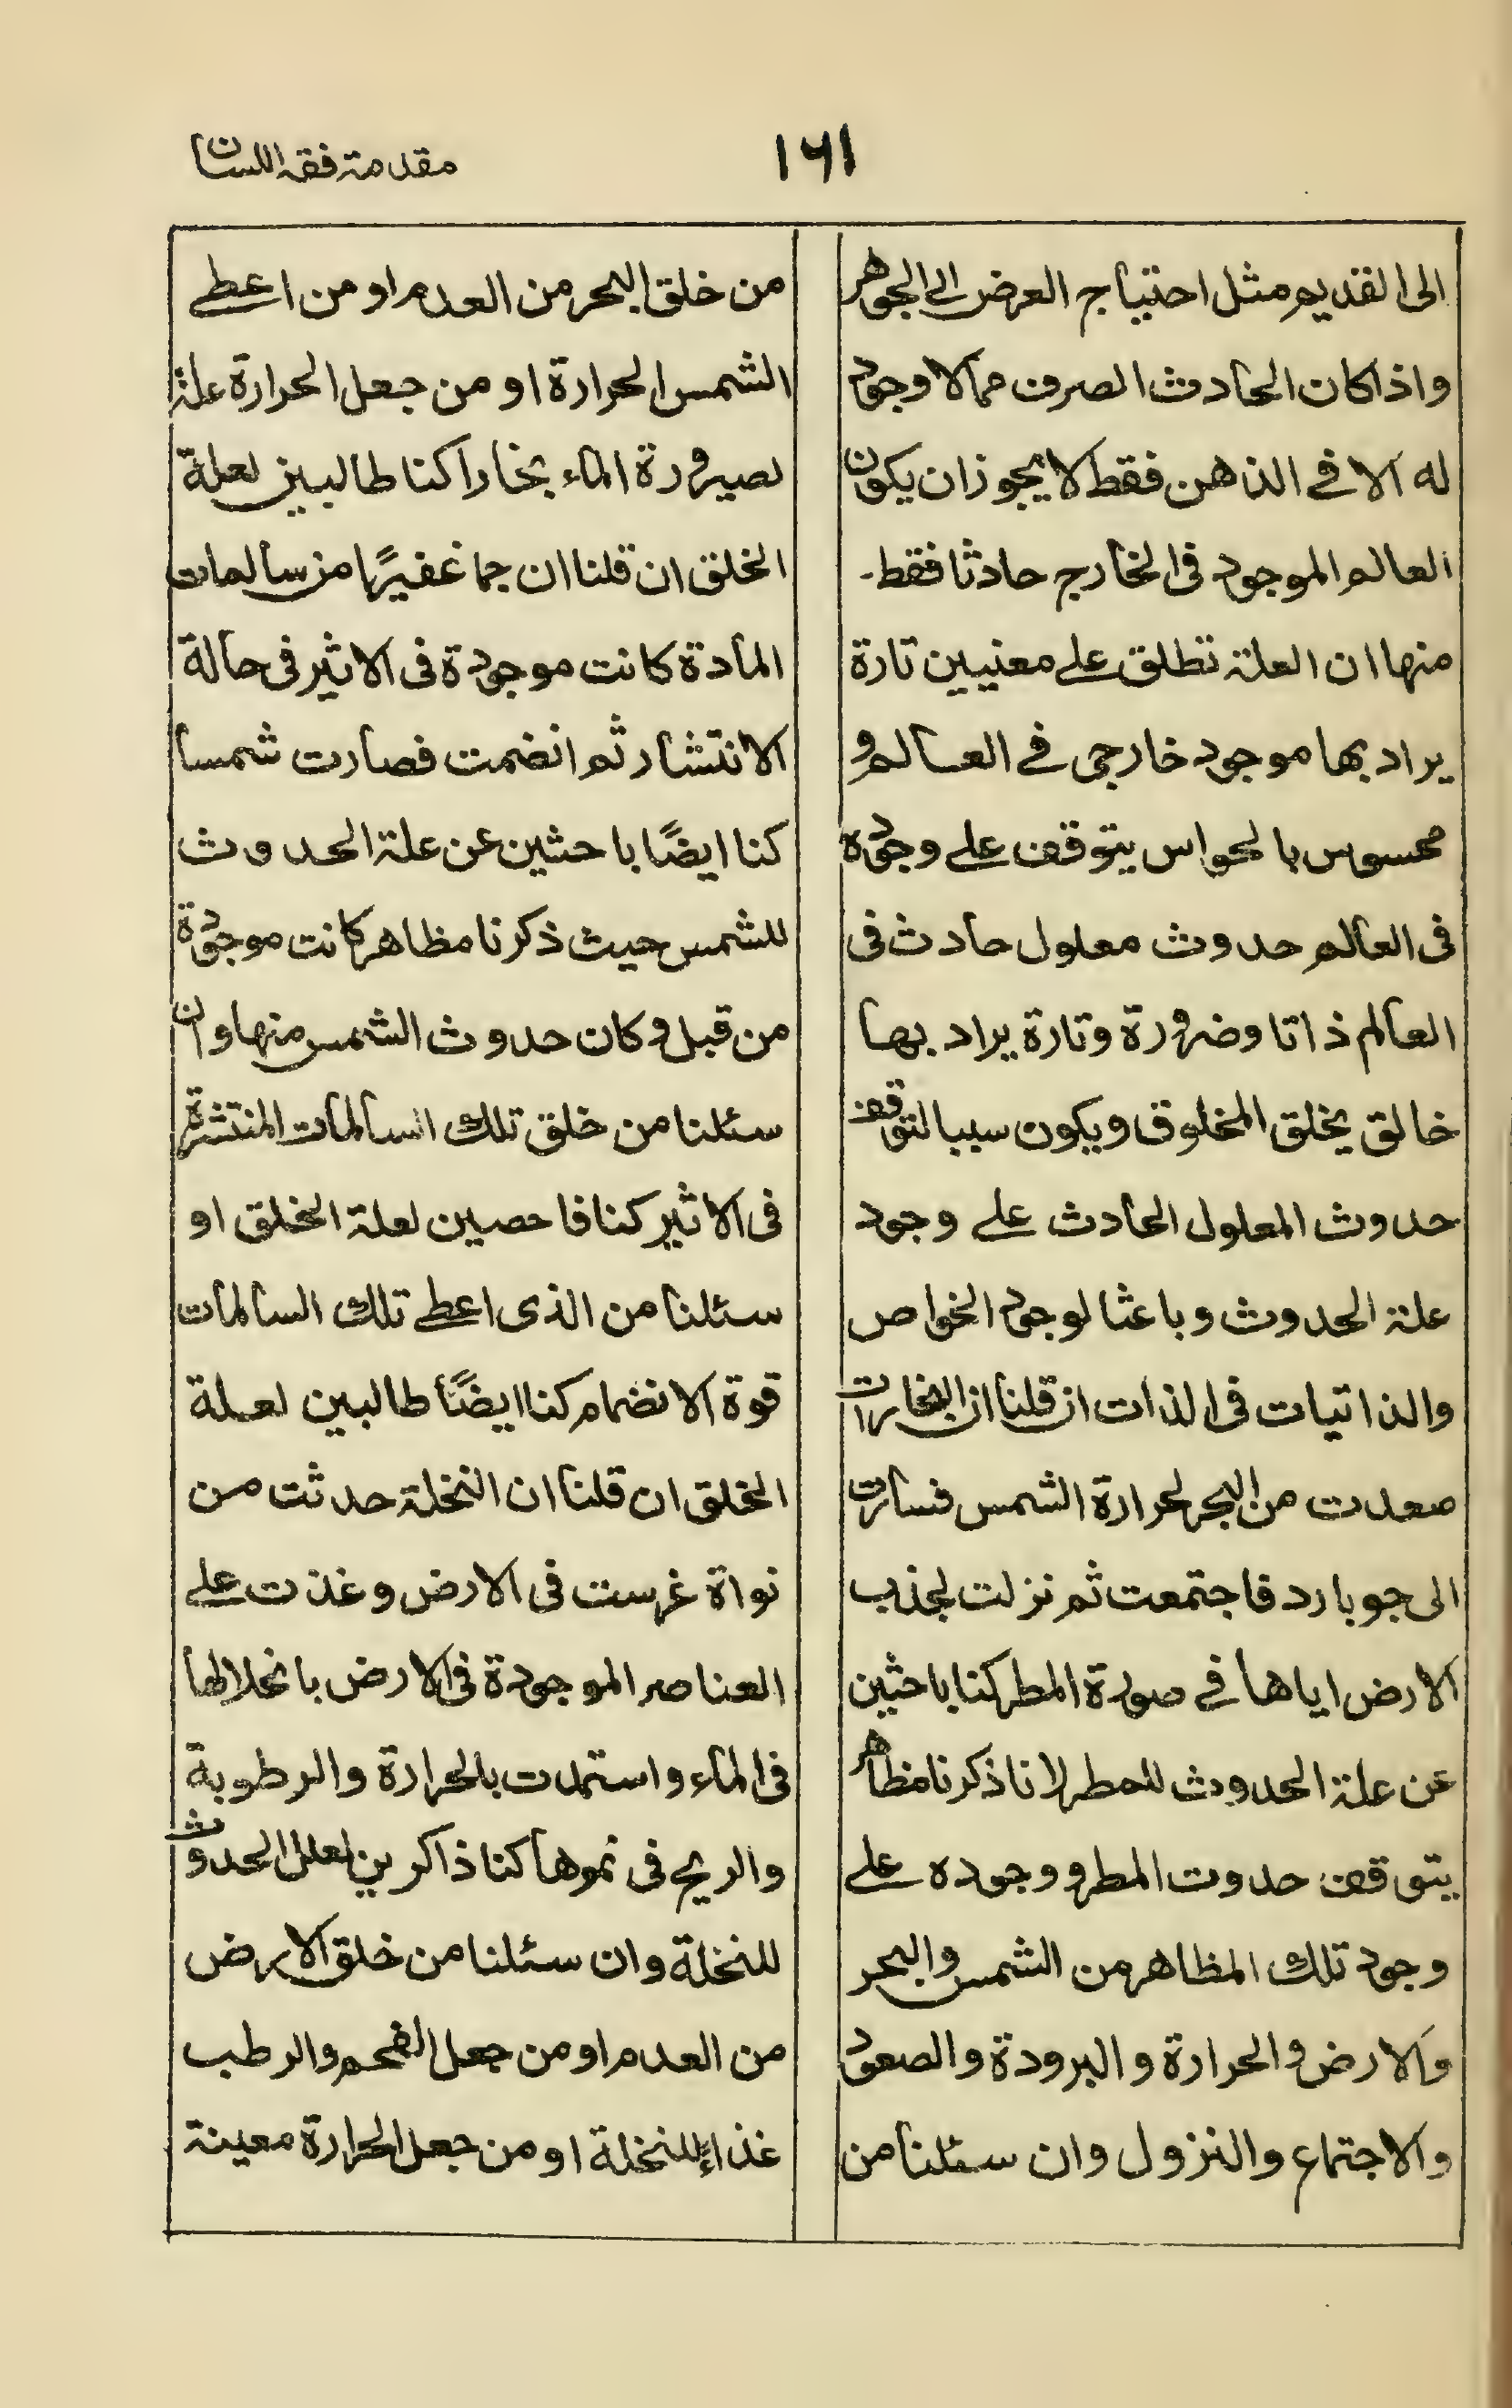 مقدمة فقه اللسان
١٦١
الى القديم مثل احتياج العرض الى الجوهر
واذا كان الحادث الصرف ممالا وجود
له الا في الذهن فقط لا يجوز ان يكون
العالم الموجود فى الخارج حادثا فقط -
منها ان العلة تطلق على معنيين تارة
يراد بها موجود خارجى في العالم و
محسوس بالحواس يتوقف على وجوده
فى العالم حدوث معلول حادث فى
العالم ذاتا وضرورة وتارة يراد بها
خالق يخلق المخلوق ويكون سببا لتوقف
حدوث المعلول الحادث على وجود
علة الحدوث وباعثا لوجود الخواص
والذاتيات فى الذات ان قلنا ان البخارات
صعدت من البحر لحرارة الشمس فسارت
الى جو بارد فاجتمعت ثم نزلت لجذب
الارض اياها في صورة المطر كنا باحثين
عن علة الحدوث للمطر لانا ذكرنا مظاهر
يتوقف حدوث المطر ووجوده على
وجود تلك المظاهر من الشمس والبحر
والارض والحرارة والبرودة والصعود
والاجتماع والنزول وان سئلنا من
من خلق البحر من العدم او من اعطى
الشمس الحرارة او من جعل الحرارة علة
لصيرورة الماء بخارا كنا طالبين لعلة
الخلق ان قلنا ان جما غفيرًا من سالمات
المادة كانت موجودة فى الاثير فى حالة
الانتشار ثم انضمت فصارت شمسا
كنا ايضًا باحثين عن علة الحدوث
للشمس حيث ذكرنا مظاهر كانت موجودة
من قبل وكان حدوث الشمس منها وان
سئلنا من خلق تلك السالمات المنتشرة
فى الاثير كنا فاحصين لعلة الخلق او
سئلنا من الذى اعطى تلك السالمات
قوة الانضمام كنا ايضًا طالبين لعلة
الخلق ان قلنا ان النخلة حدثت من
نواة غرست فى الارض وغذت على
العناصر الموجودة فى الارض بانحلالها
فى الماء واستمدت بالحرارة والرطوبة
والريح فى نموها كنا ذاكرين لعلل الحدوث
للنخلة وان سئلنا من خلق الارض
من العدم او من جعل الفحم والرطب
غذاء للنخلة او من جعل الحرارة معينة